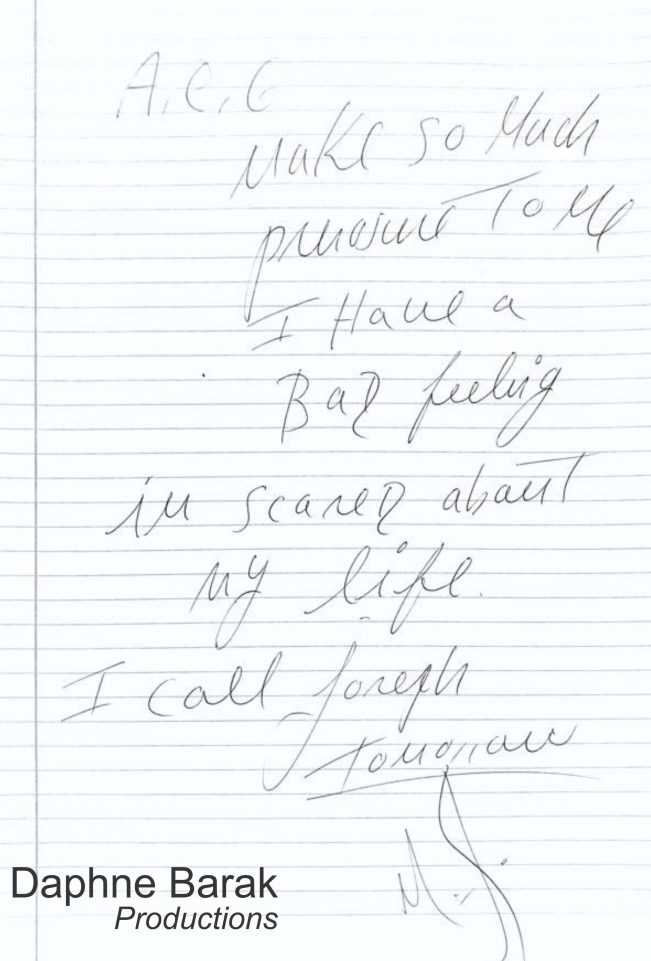 A.E.G
Make so Much
pressure To Me
I Have a
BaD feeling
im scareD about
my life.
I call Joseph
tomorrow
M.J.
Daphne Barak
Productions